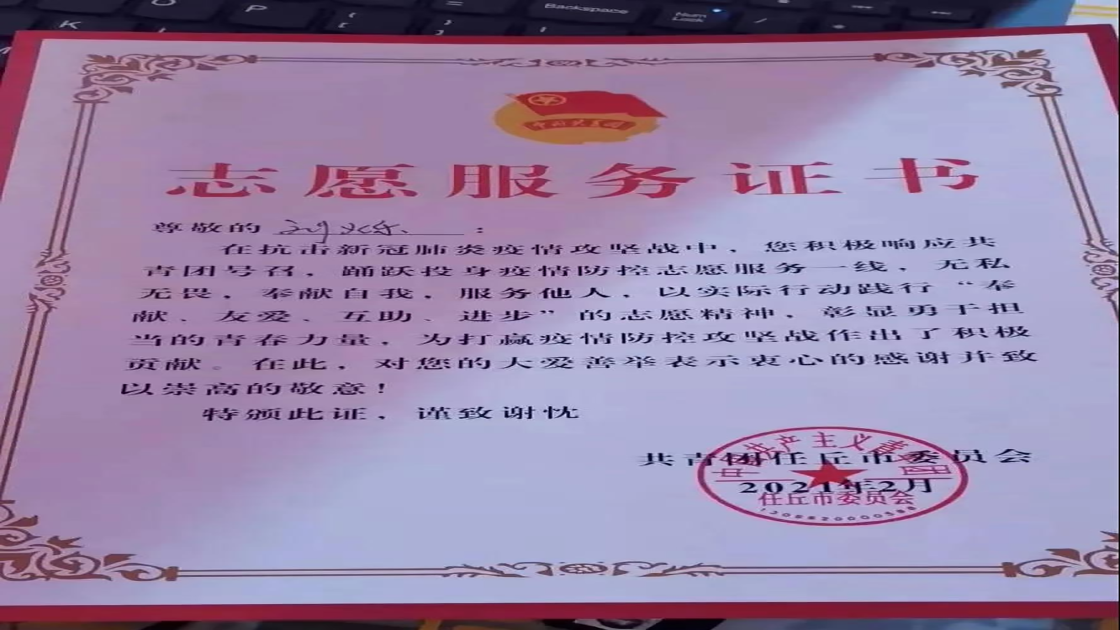 K
Backspace
Num Lock
中国共青团
志愿服务证书
尊敬的
：
在抗击新冠肺炎疫情攻坚战中，您积极响应共
青团号召，踊跃投身疫情防控志愿服务一线，无私
无畏，奉献自我，服务他人，以实际行动践行“奉
献、友爱、互助、进步”的志愿精神，彰显勇于担
当的青春力量，为打赢疫情防控攻坚战作出了积极
贡献。在此，对您的大爱善举表示衷心的感谢并致
以崇高的敬意！
特颁此证，谨致谢忱
共青团任丘市委员会
2021年2月
中国共产主义青年团
任丘市委员会